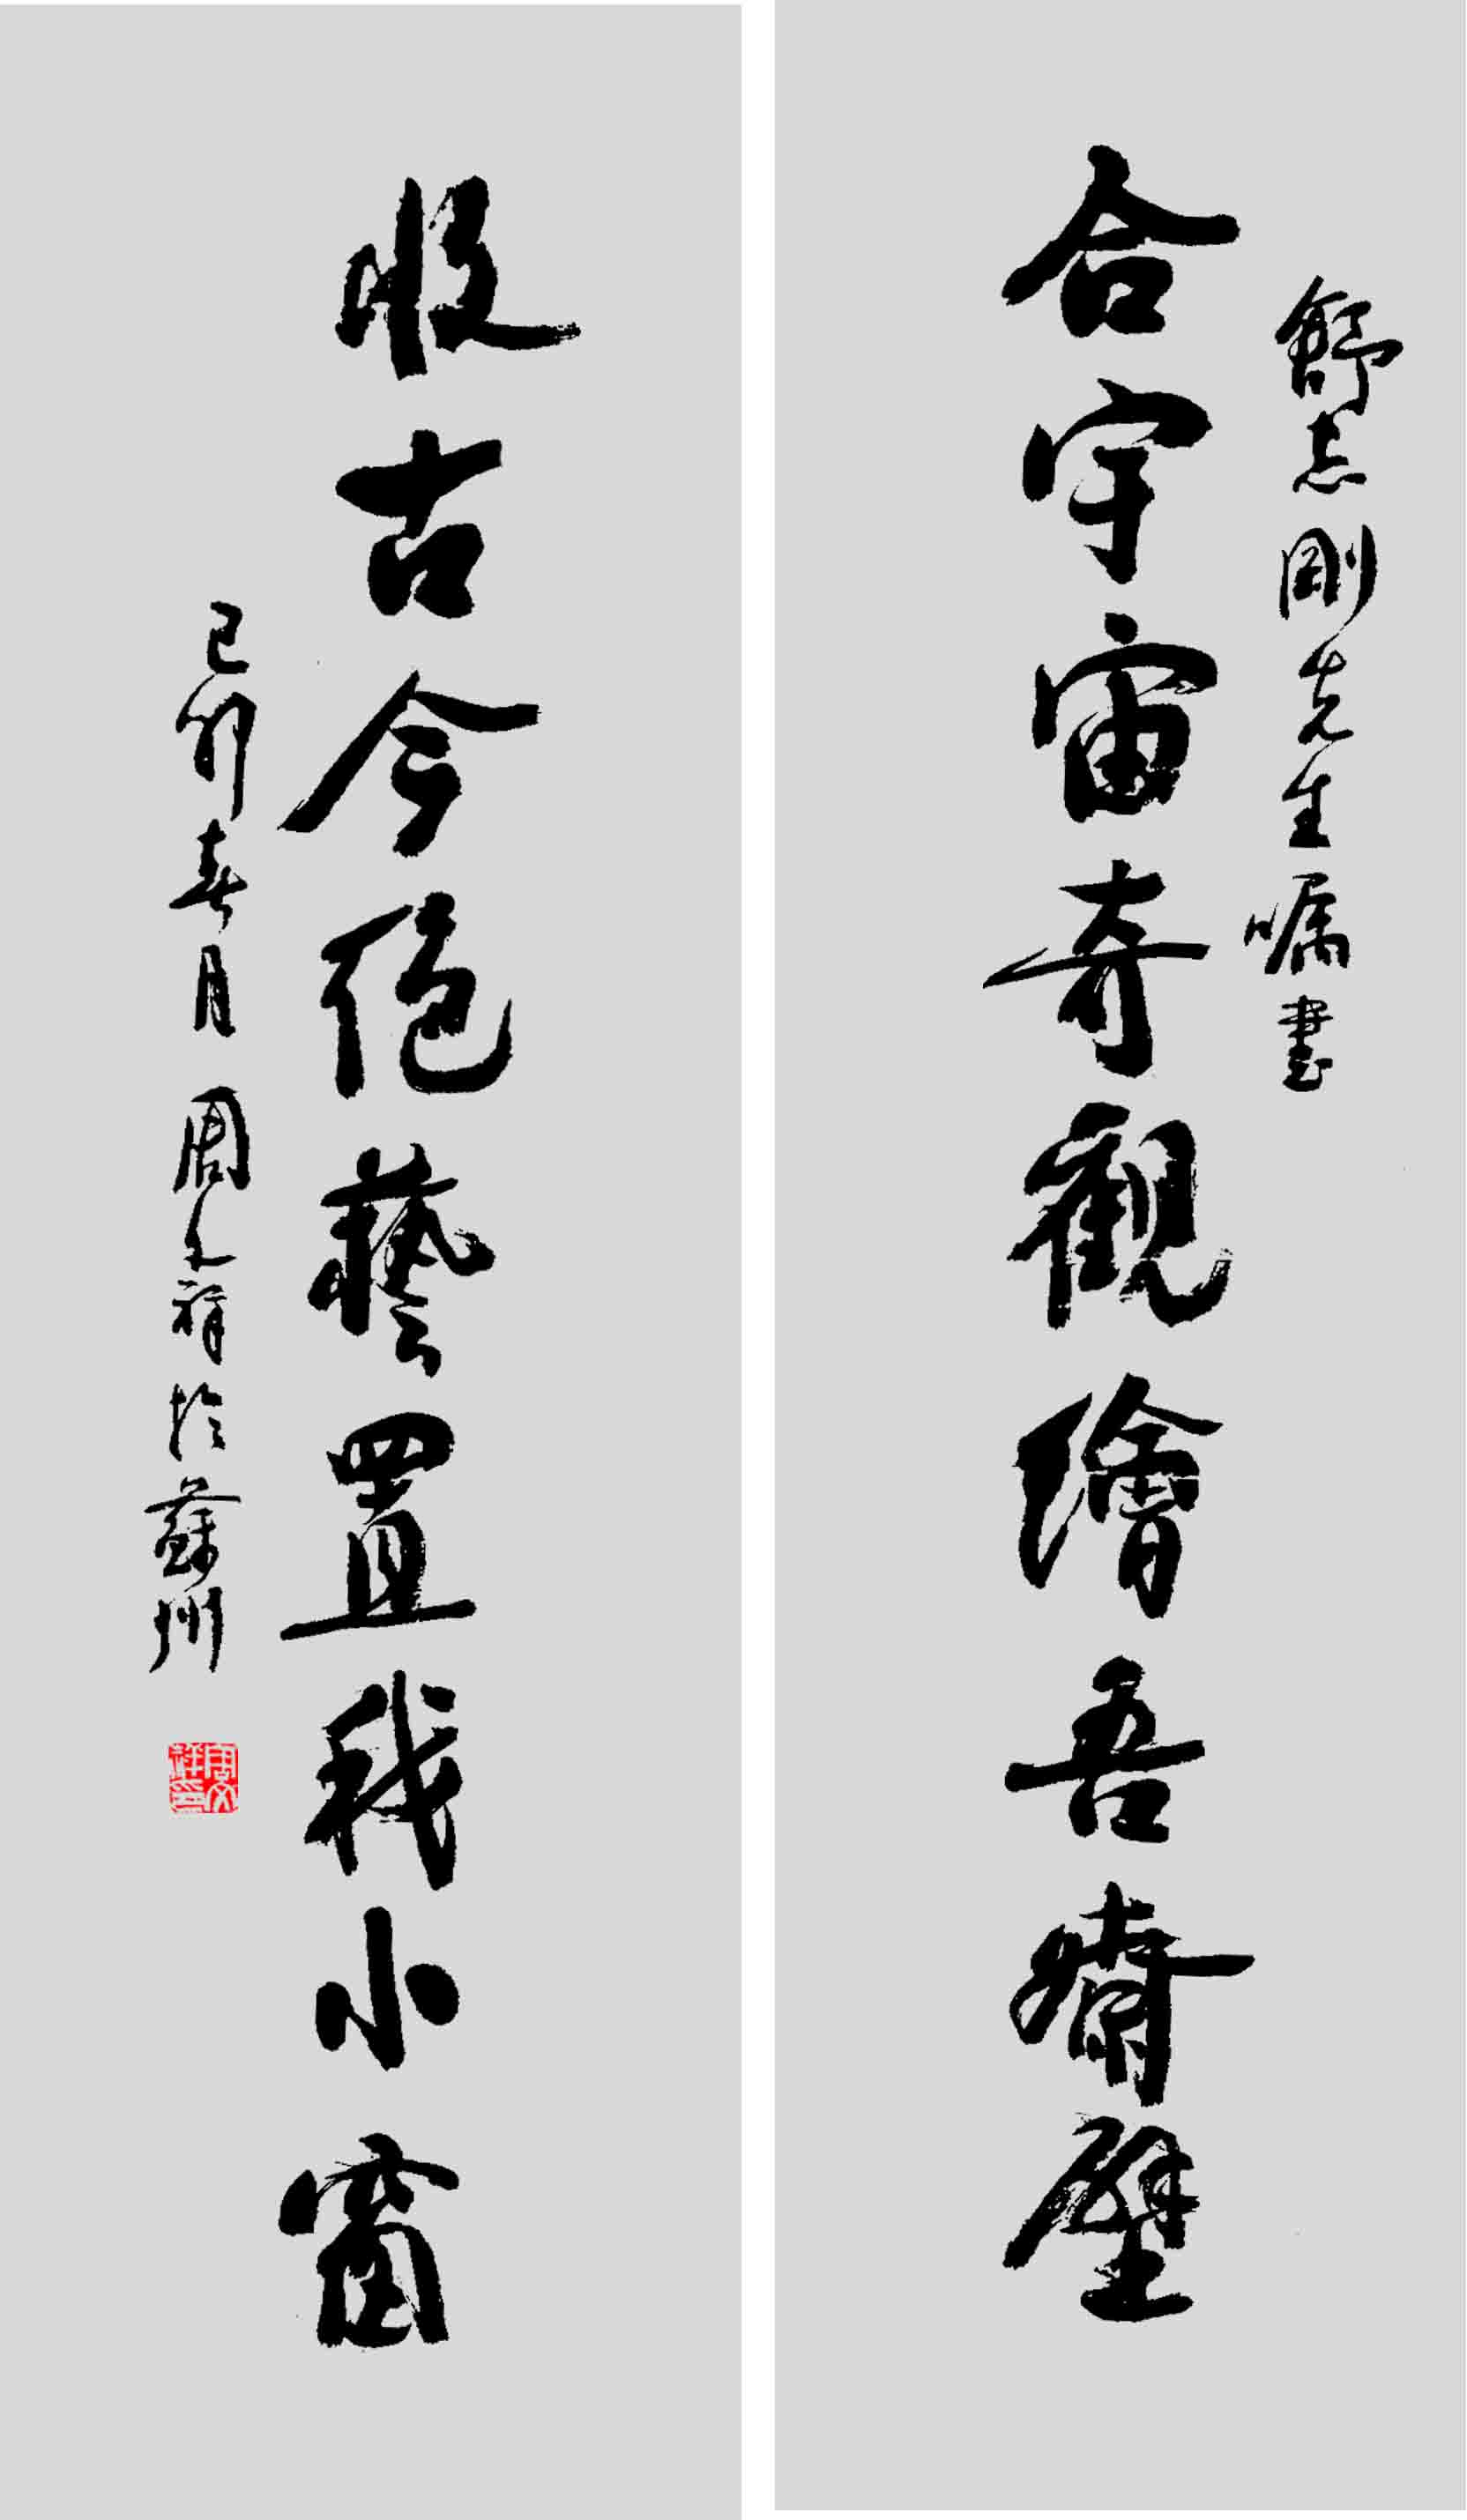 舒志刚先生嘱书
合宇宙奇觀繪吾齋壁
收古今絕藝置我小窗
己卯春月 周文祥於蘇州
周文祥印